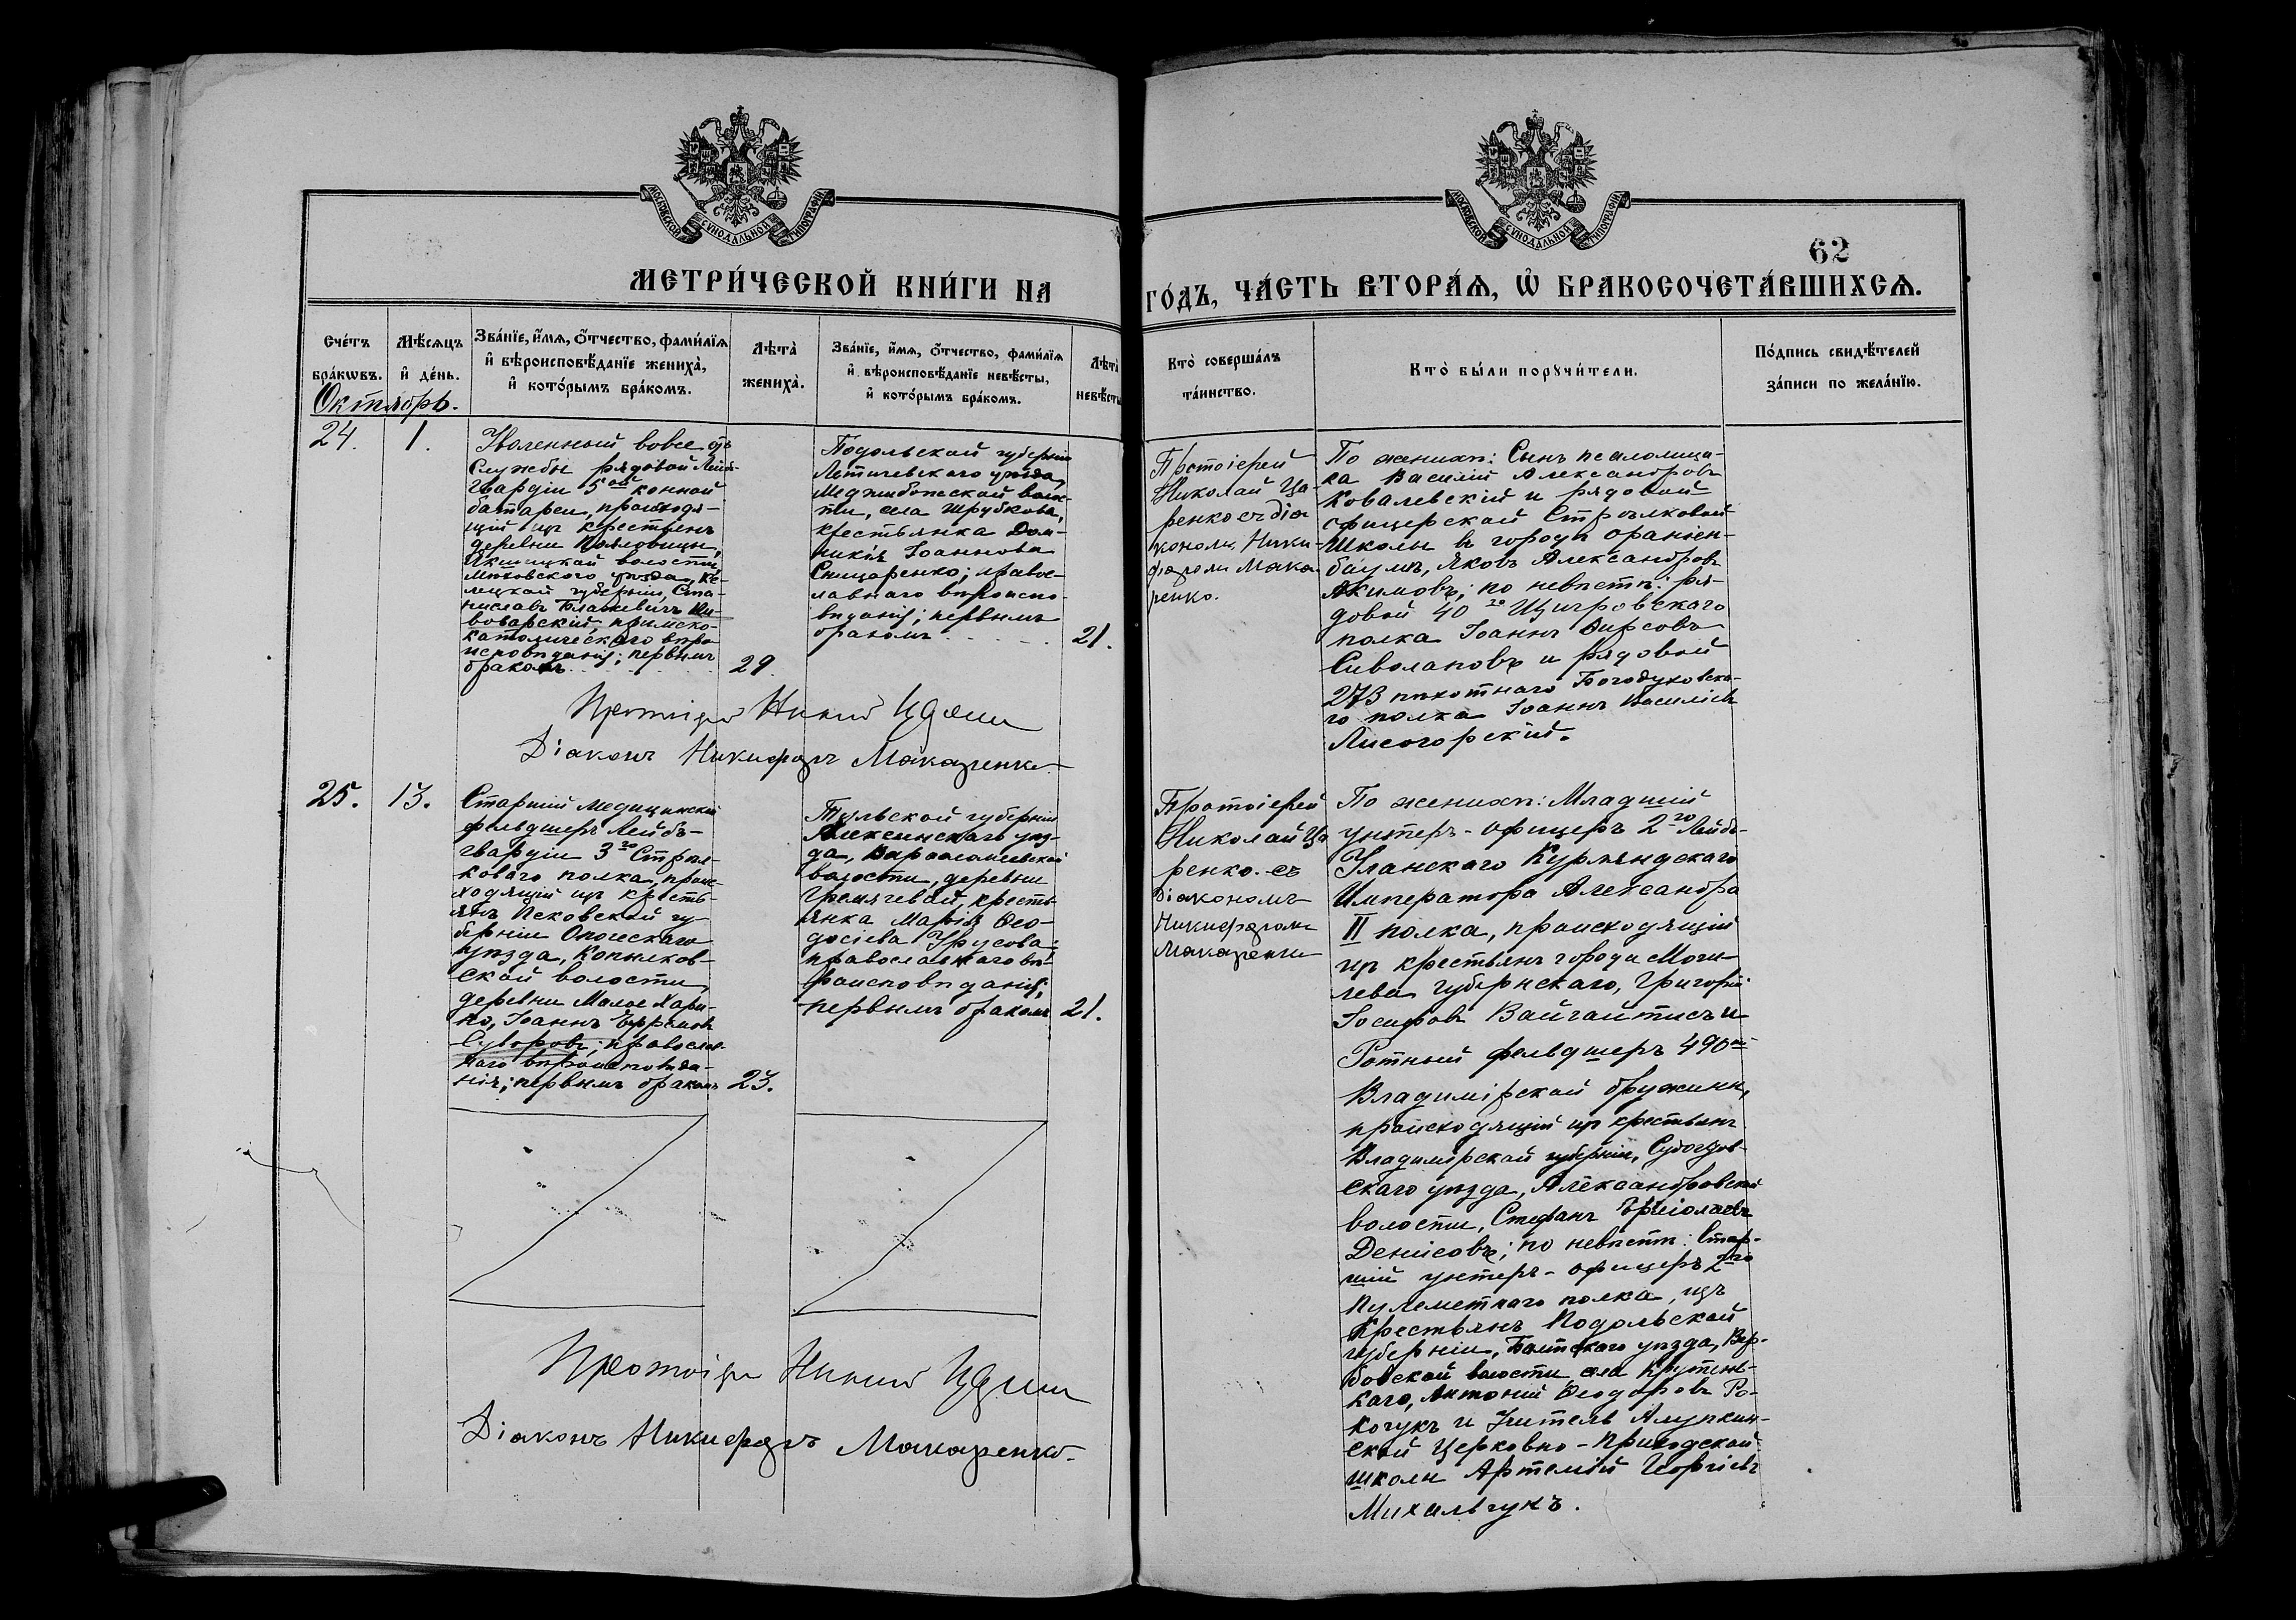 МОСКОВСКОЙ СУНОДАЛЬНОЙ ТИПОГРАФІИ
МОСКОВСКОЙ СУНОДАЛЬНОЙ ТИПОГРАФІИ
62
МЕТРИ́ЧЕСКОЙ КНИ́ГИ НА
ГО́ДЪ, ЧА́СТЬ ВТОРА́Я, Ѡ҆ БРАКОСОЧЕТА́ВШИХСЯ.
Сче́тъ
бра́кѡвъ.
Мѣ́сяцъ
и҆ де́нь.
Зва́нїе, и҆́мя, ѻ҆́тчество, фами́лїя
и҆ вѣроисповѣ́данїе жениха̀,
и҆ кото́рымъ бра́комъ.
Лѣта̀
жениха̀.
Зва́нїе, и҆́мя, ѻ҆́тчество, фами́лїя
и҆ вѣроисповѣ́данїе невѣ́сты,
и҆ кото́рымъ бра́комъ.
Лѣта̀
невѣ́сты
Кто̀ соверша́лъ
та́инство.
Кто̀ бы́ли порꙋчи́тели.
По́дпись свидѣ́телей
за́писи по жела́нїю.
Октябрь.
24.
1.
Уволенный вовсе отъ
службы рядовой Лейб-
гвардіи 5ой конной
батареи, происходя-
щій изъ крестьянъ
деревни
волости,
Мѣховскаго уѣзда, Кѣ-
лецкой губерніи, Ста-
ниславъ Блажевичъ Пи-
воварскій, римско-
католическаго вѣро
исповѣданія; первымъ
бракомъ
29.
Подольской губерніи
Летичевскаго уѣзда,
Меджибожской волос-
ти, села Шрубкова,
крестьянка Дом-
никія Іоаннова
Сницаренко; правос-
лавнаго вѣроиспо-
вѣданія; первымъ
бракомъ
21.
Протоіерей
Николай Ца-
ренко съ діа
кономъ Ники-
форомъ Мака-
ренко.
По женихѣ: Сынъ псаломщи-
ка Василій Александровъ
Ковалевскій и рядовой
офицерской Стрѣлковой
Школы въ городѣ Ораніен-
баумъ, Яковъ Александровъ
Акимовъ; по невѣстѣ: ря-
довой 40го Щигровскаго
полка Іоаннъ Фирсовъ
Сиволаповъ и рядовой
273 пѣхотнаго Богодуховска-
го полка Іоаннъ Васильевъ
Лисогорскій.
Протоіерей
Діаконъ Никифоръ Макаренко.
25.
13.
Старшій медицинскій
фельдшеръ Лейбъ-
гвардіи 3го Стрѣл-
коваго полка, проис-
ходящій изъ кресть-
янъ Псковской гу-
берніи Опоческаго
уѣзда, Копылков-
ской волости,
деревни Малое Хари-
но, Іоаннъ Ефремовъ
Суворовъ; православ-
наго вѣроисповѣда-
нія; первымъ бракомъ
23.
Тульской губерніи
Алексинскаго уѣз-
да, Варфоломеевской
волости, деревни
Гремячевой, кресть
янка Марія Ѳео-
досіева Урусова;
православнаго вѣ-
роисповѣданія;
первымъ бракомъ
21.
Протоіерей
Николай Ца
ренко съ
Діакономъ
Никифоромъ
Макаренко
По женихѣ: Младшій
унтеръ-офицеръ 2го Лейбъ-
Уланскаго Курляндскаго
Императора Александра
II полка, происходящій
изъ крестьянъ города Моги-
лева губернскаго, Григорій
Іосифовъ Вайчайтисъ и
Ротный фельдшеръ 490й
Владимірской дружины,
происходящій изъ крестьянъ
Владимірской губерніи, Судогдов-
скаго уѣзда, Александровской
волости, Стефанъ
Денисовъ; по невѣстѣ: Стар-
шій унтеръ-офицеръ 2го
пулеметнаго полка, изъ
крестьянъ Подольской
губерніи, Балтскаго уѣзда, Вер-
бовской волости села Крутень-
каго, Антоній Ѳеодоровъ Ро-
кочукъ и Учитель Алупкин-
ской Церковно-приходской
школы Артемій
Михальчукъ.
Протоіерей
Діаконъ Никифоръ Макаренко.